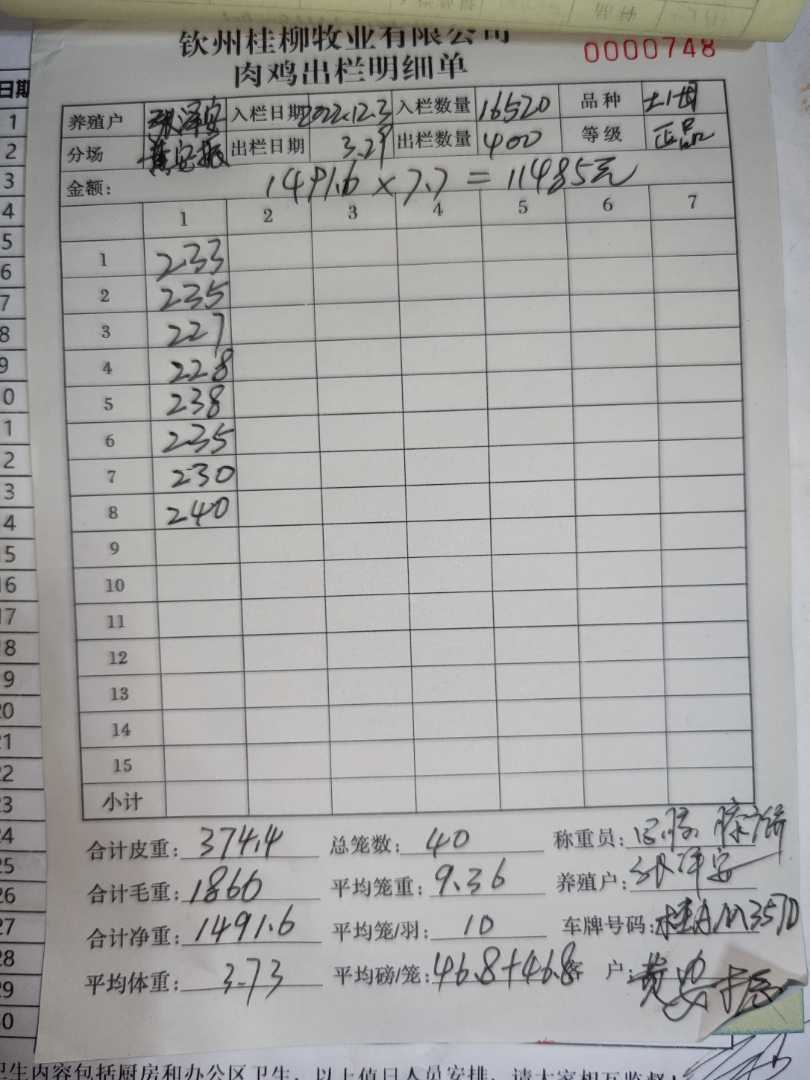 钦州桂柳牧业有限公司
0000748
肉鸡出栏明细单
养殖户 张泽安 入栏日期 2022.12.3 入栏数量 16520 品种
分场 黄安振 出栏日期 3.29 出栏数量 400 等级 正品
金额: 1491.6 × 7.7 = 11485元
1 2 3 4 5 6 7
1 233
2 235
3 227
4 228
5 238
6 235
7 230
8 240
9
10
11
12
13
14
15
小计
合计皮重: 374.4 总笼数: 40 称重员:
合计毛重: 1866 平均笼重: 9.36 养殖户: 张泽安
合计净重: 1491.6 平均笼/羽: 10 车牌号码: 桂AM357D
平均体重: 3.73 平均磅/笼: 46.8+46.8 客户: 黄安振
日期
1
2
3
4
5
6
7
8
9
0
1
2
3
4
15
16
17
18
19
20
21
22
23
24
25
26
27
28
29
30
卫生内容包括厨房和办公区卫生,以上值日人员安排,请大家相互监督!